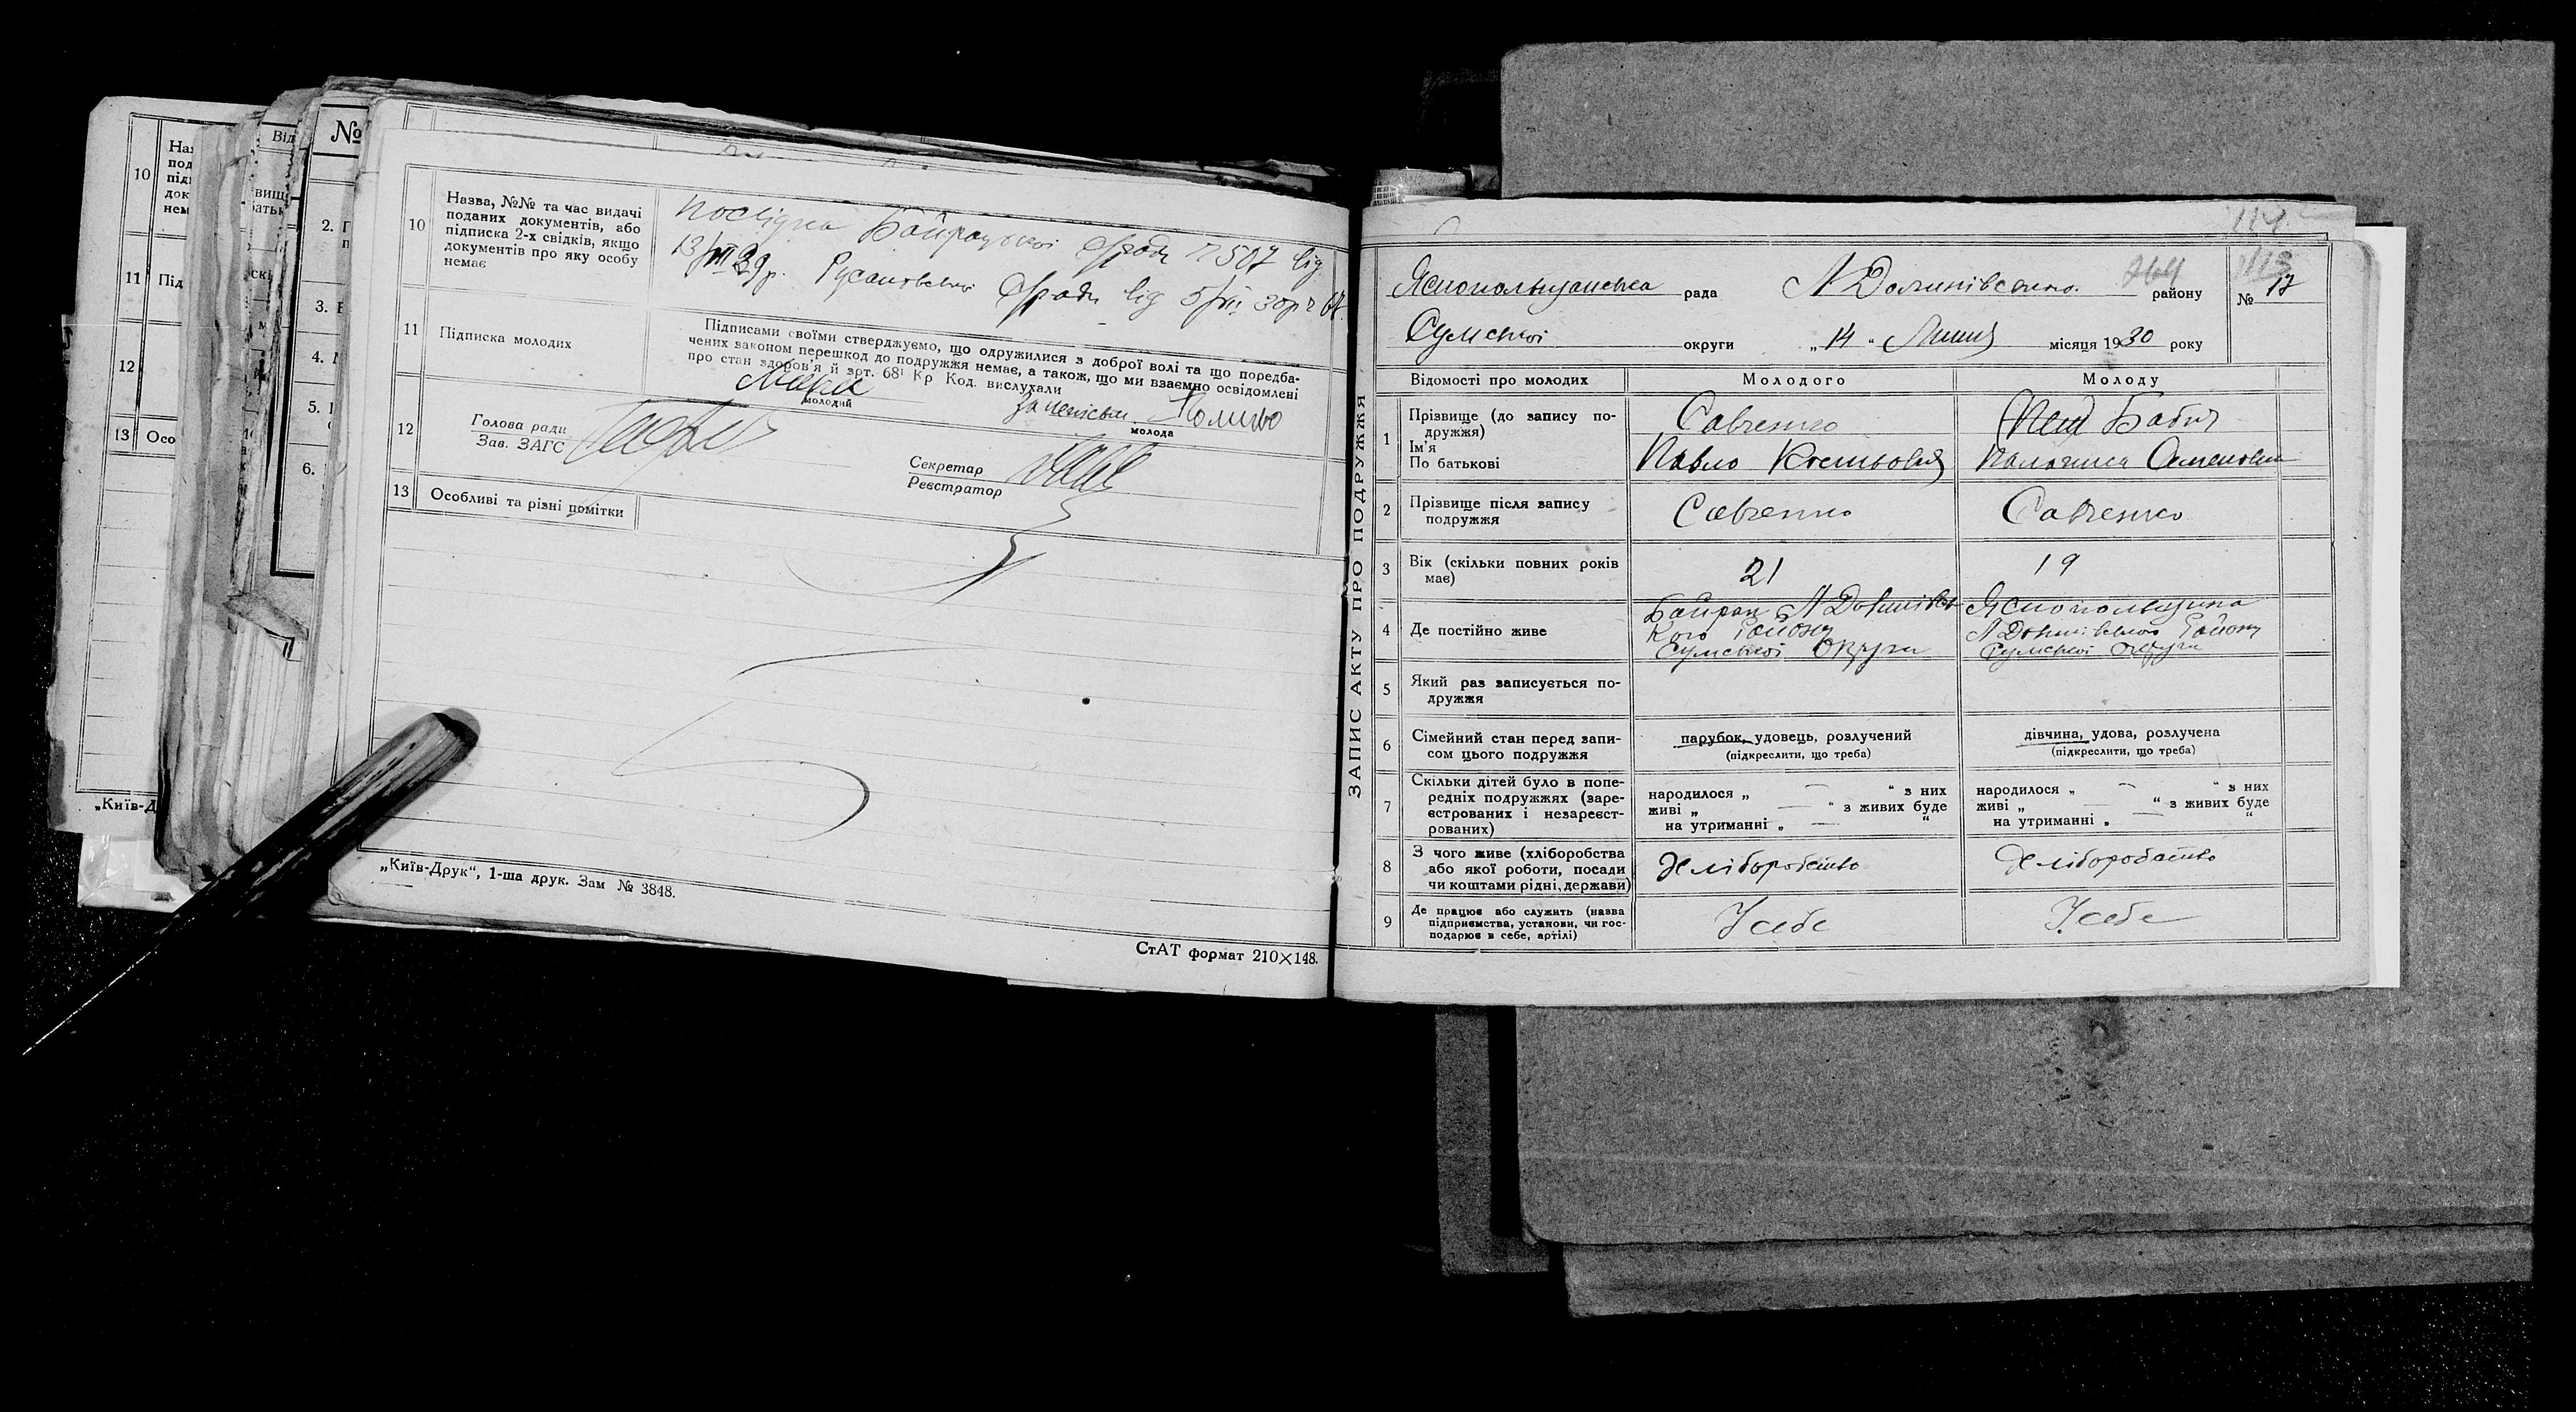 10
11
12
13
№
2.
3.
4.
5.
6.
„Київ-Д
10 Назва, №№ та час видачі поданих документів, або підписка 2-х свідків, якщо документів про яку особу немає
Посвідка Байрацької с/ради № 507 від
13/VII р. Русанівської с/ради від 5/VII 30р №
11 Підписка молодих
Підписами своїми стверджуємо, що одружилися з доброї волі та що передба-
чених законом перешкод до подружжя немає, а також, що ми взаємно освідомлені
про стан здоров'я й арт. 68¹ Кр Код. вислухали
молодий
молода
12 Голова ради
Зав. ЗАГС
Секретар
Реєстратор
13 Особливі та різні помітки
„Київ-Друк“, 1-ша друк. Зам № 3848.
СтАТ формат 210×148.
ЗАПИС АКТУ ПРО ПОДРУЖЖЯ
114
113
Яснопольщанська рада Л Долинівського району № 17
Сумської округи „14“ Липня місяця 1930 року
Відомості про молодих Молодого Молоду
1 Прізвище (до запису по-
дружжя)
Ім'я
По батькові
Савченко Бабич
Павло Костьович Палажка Семенівна
2 Прізвище після запису
подружжя
Савченко Савченко
3 Вік (скільки повних років
має)
21 19
4 Де постійно живе
Байрак Л Долинівсь
кого Району
Сумської Округи
Яснопольщина
Л Долинівського Району
Сумської Округи
5 Який раз записується по-
дружжя
6 Сімейний стан перед запи-
сом цього подружжя
парубок, удовець, розлучений
(підкреслити, що треба)
дівчина, удова, розлучена
(підкреслити, що треба)
7 Скільки дітей було в попе-
редніх подружжях (заре-
єстрованих і незареєст-
рованих)
народилося „ — “ з них
живі „ — “ з живих буде
на утриманні „ — “
народилося „ — “ з них
живі „ — “ з живих буде
на утриманні „ — “
8 З чого живе (хліборобства
або якої роботи, посади
чи коштами рідні, держави)
Хліборобство Хліборобство
9 Де працює або служить (назва
підприємства, установи, чи гос-
подарює в себе, артілі)
У себе У себе